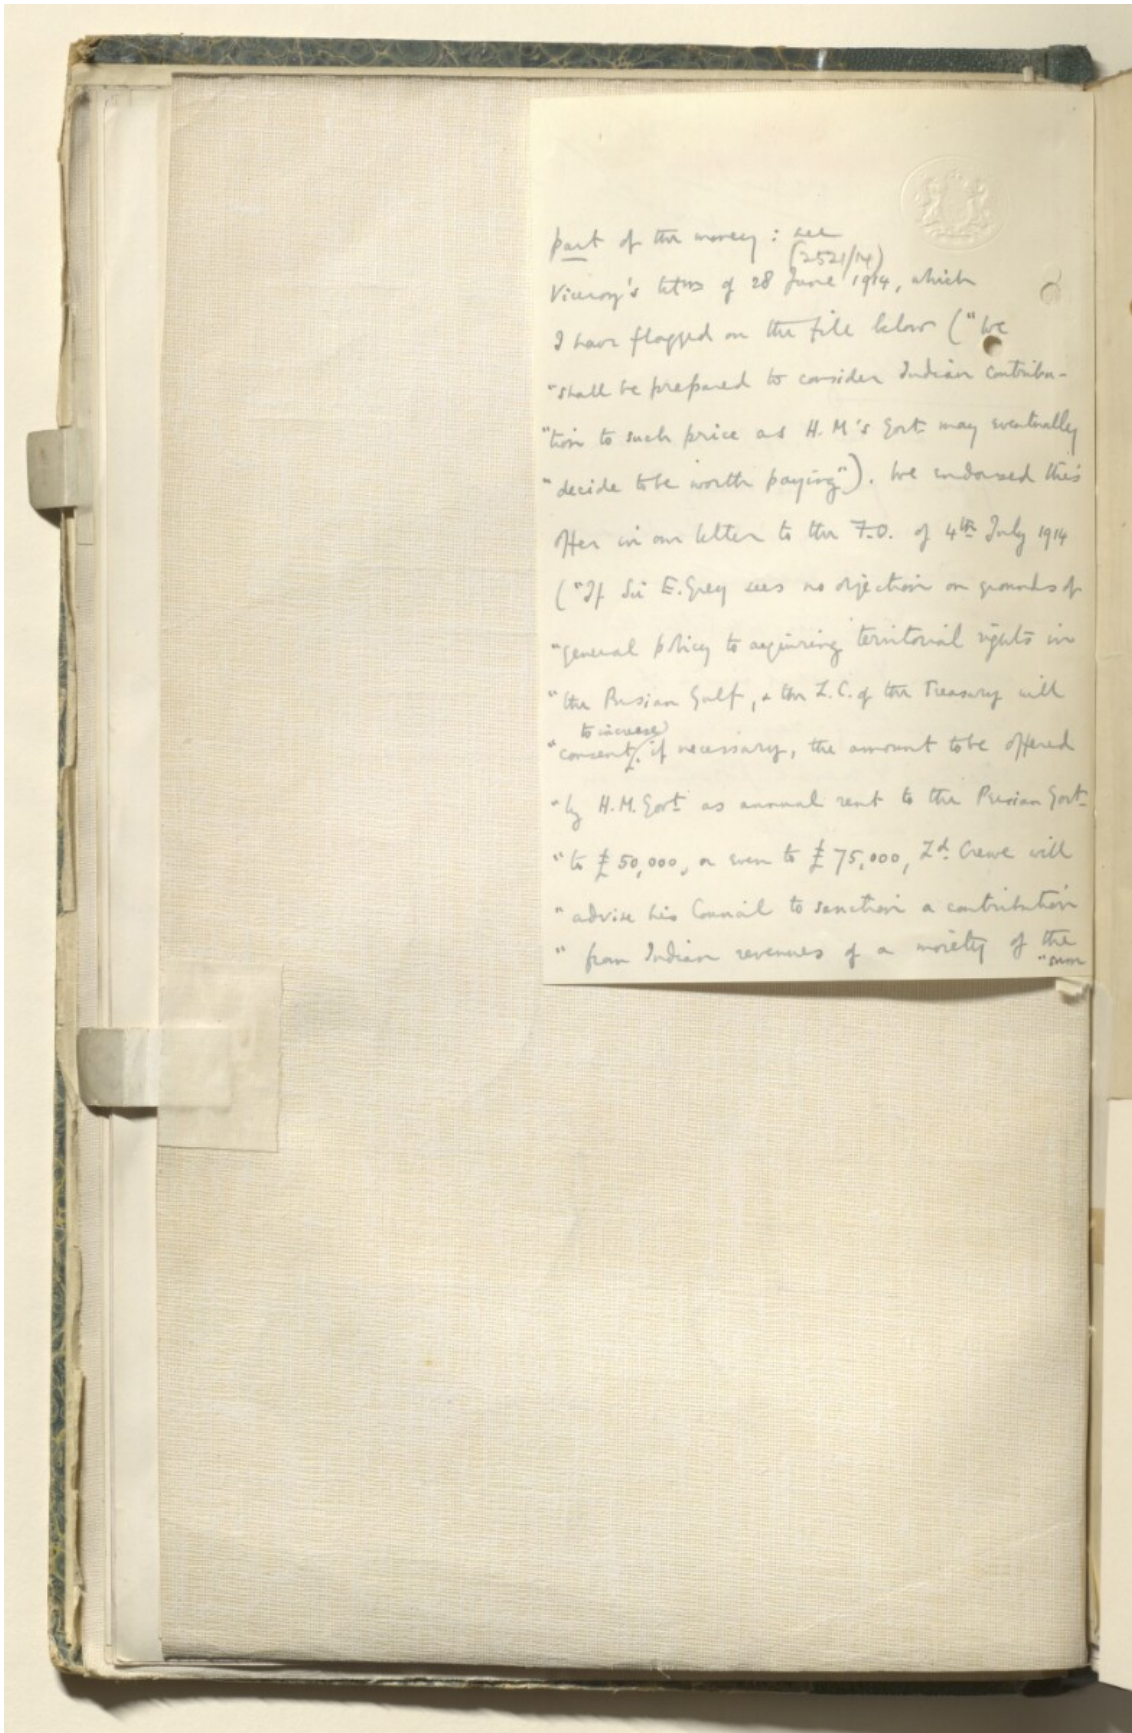 part of the money : see
(2521/14)
Viceroy's telm of 28 June 1914, which
I have flagged on the file below ("We
"shall be prepared to consider Indian contribu-
"tion to such price as H.M's Govt. may eventually
"decide to be worth paying"). We endorsed this
offer in our letter to the F.O. of 4th July 1914
("If Sir E. Grey sees no objection on grounds of
"general policy to acquiring territorial rights in
"the Persian Gulf, & the L.C. of the Treasury will
to increase
"consent, if necessary, the amount to be offered
"by H.M. Govt. as annual rent to the Persian Govt.
"to £50,000, or even to £75,000, Ld. Crewe will
"advise his Council to sanction a contribution
"from Indian revenues of a moiety of the
"sum